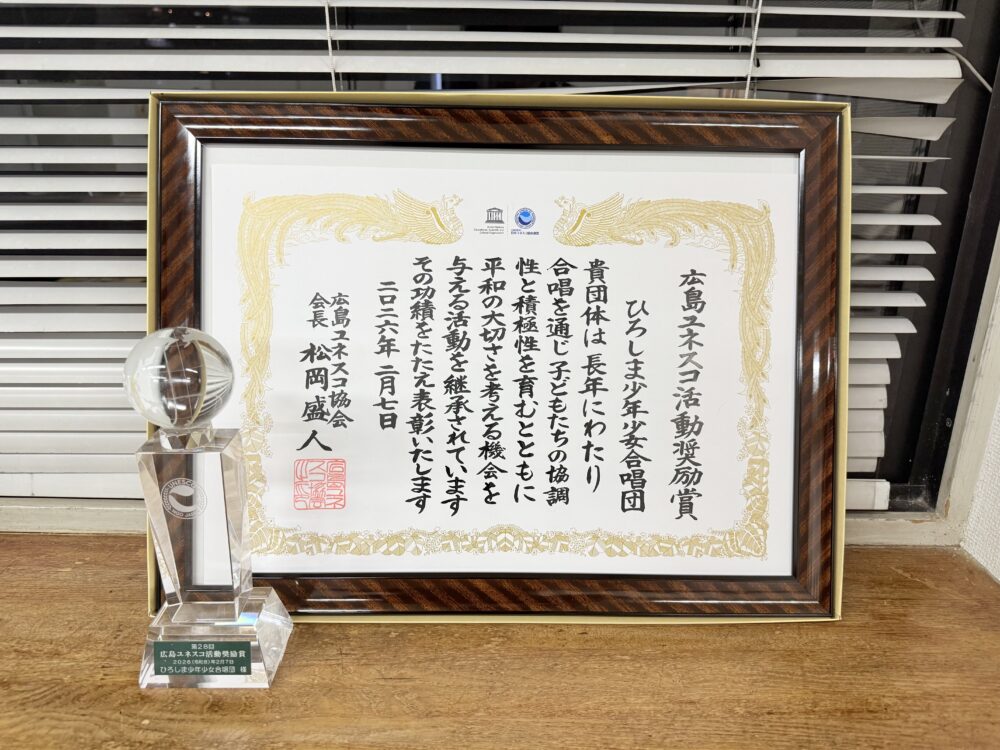 広島ユネスコ活動奨励賞
ひろしま少年少女合唱団
貴団体は長年にわたり
合唱を通じ子どもたちの協調
性と積極性を育むとともに
平和の大切さを考える機会を
与える活動を継承されています
その功績をたたえ表彰いたします
二〇二六年二月七日
広島ユネスコ協会
会長 松岡盛人
UNESCO
第28回
広島ユネスコ活動奨励賞
2026(令和8)年2月7日
ひろしま少年少女合唱団 様